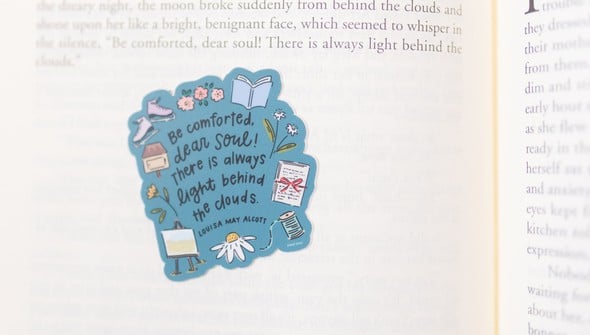 the dreary night, the moon broke suddenly from behind the clouds and
shone upon her like a bright, benignant face, which seemed to whisper in
the silence, "Be comforted, dear soul! There is always light behind the
clouds."
Be comforted,
dear soul!
There is always
light behind
the clouds.
LOUISA MAY ALCOTT
trouble
they dressed
their mothe
from them.
dim and
early hour
as she flew
ready in th
herself sat
and anxiety
eyes kept
kitchen
expression,
Nobod
waiting for
about her.